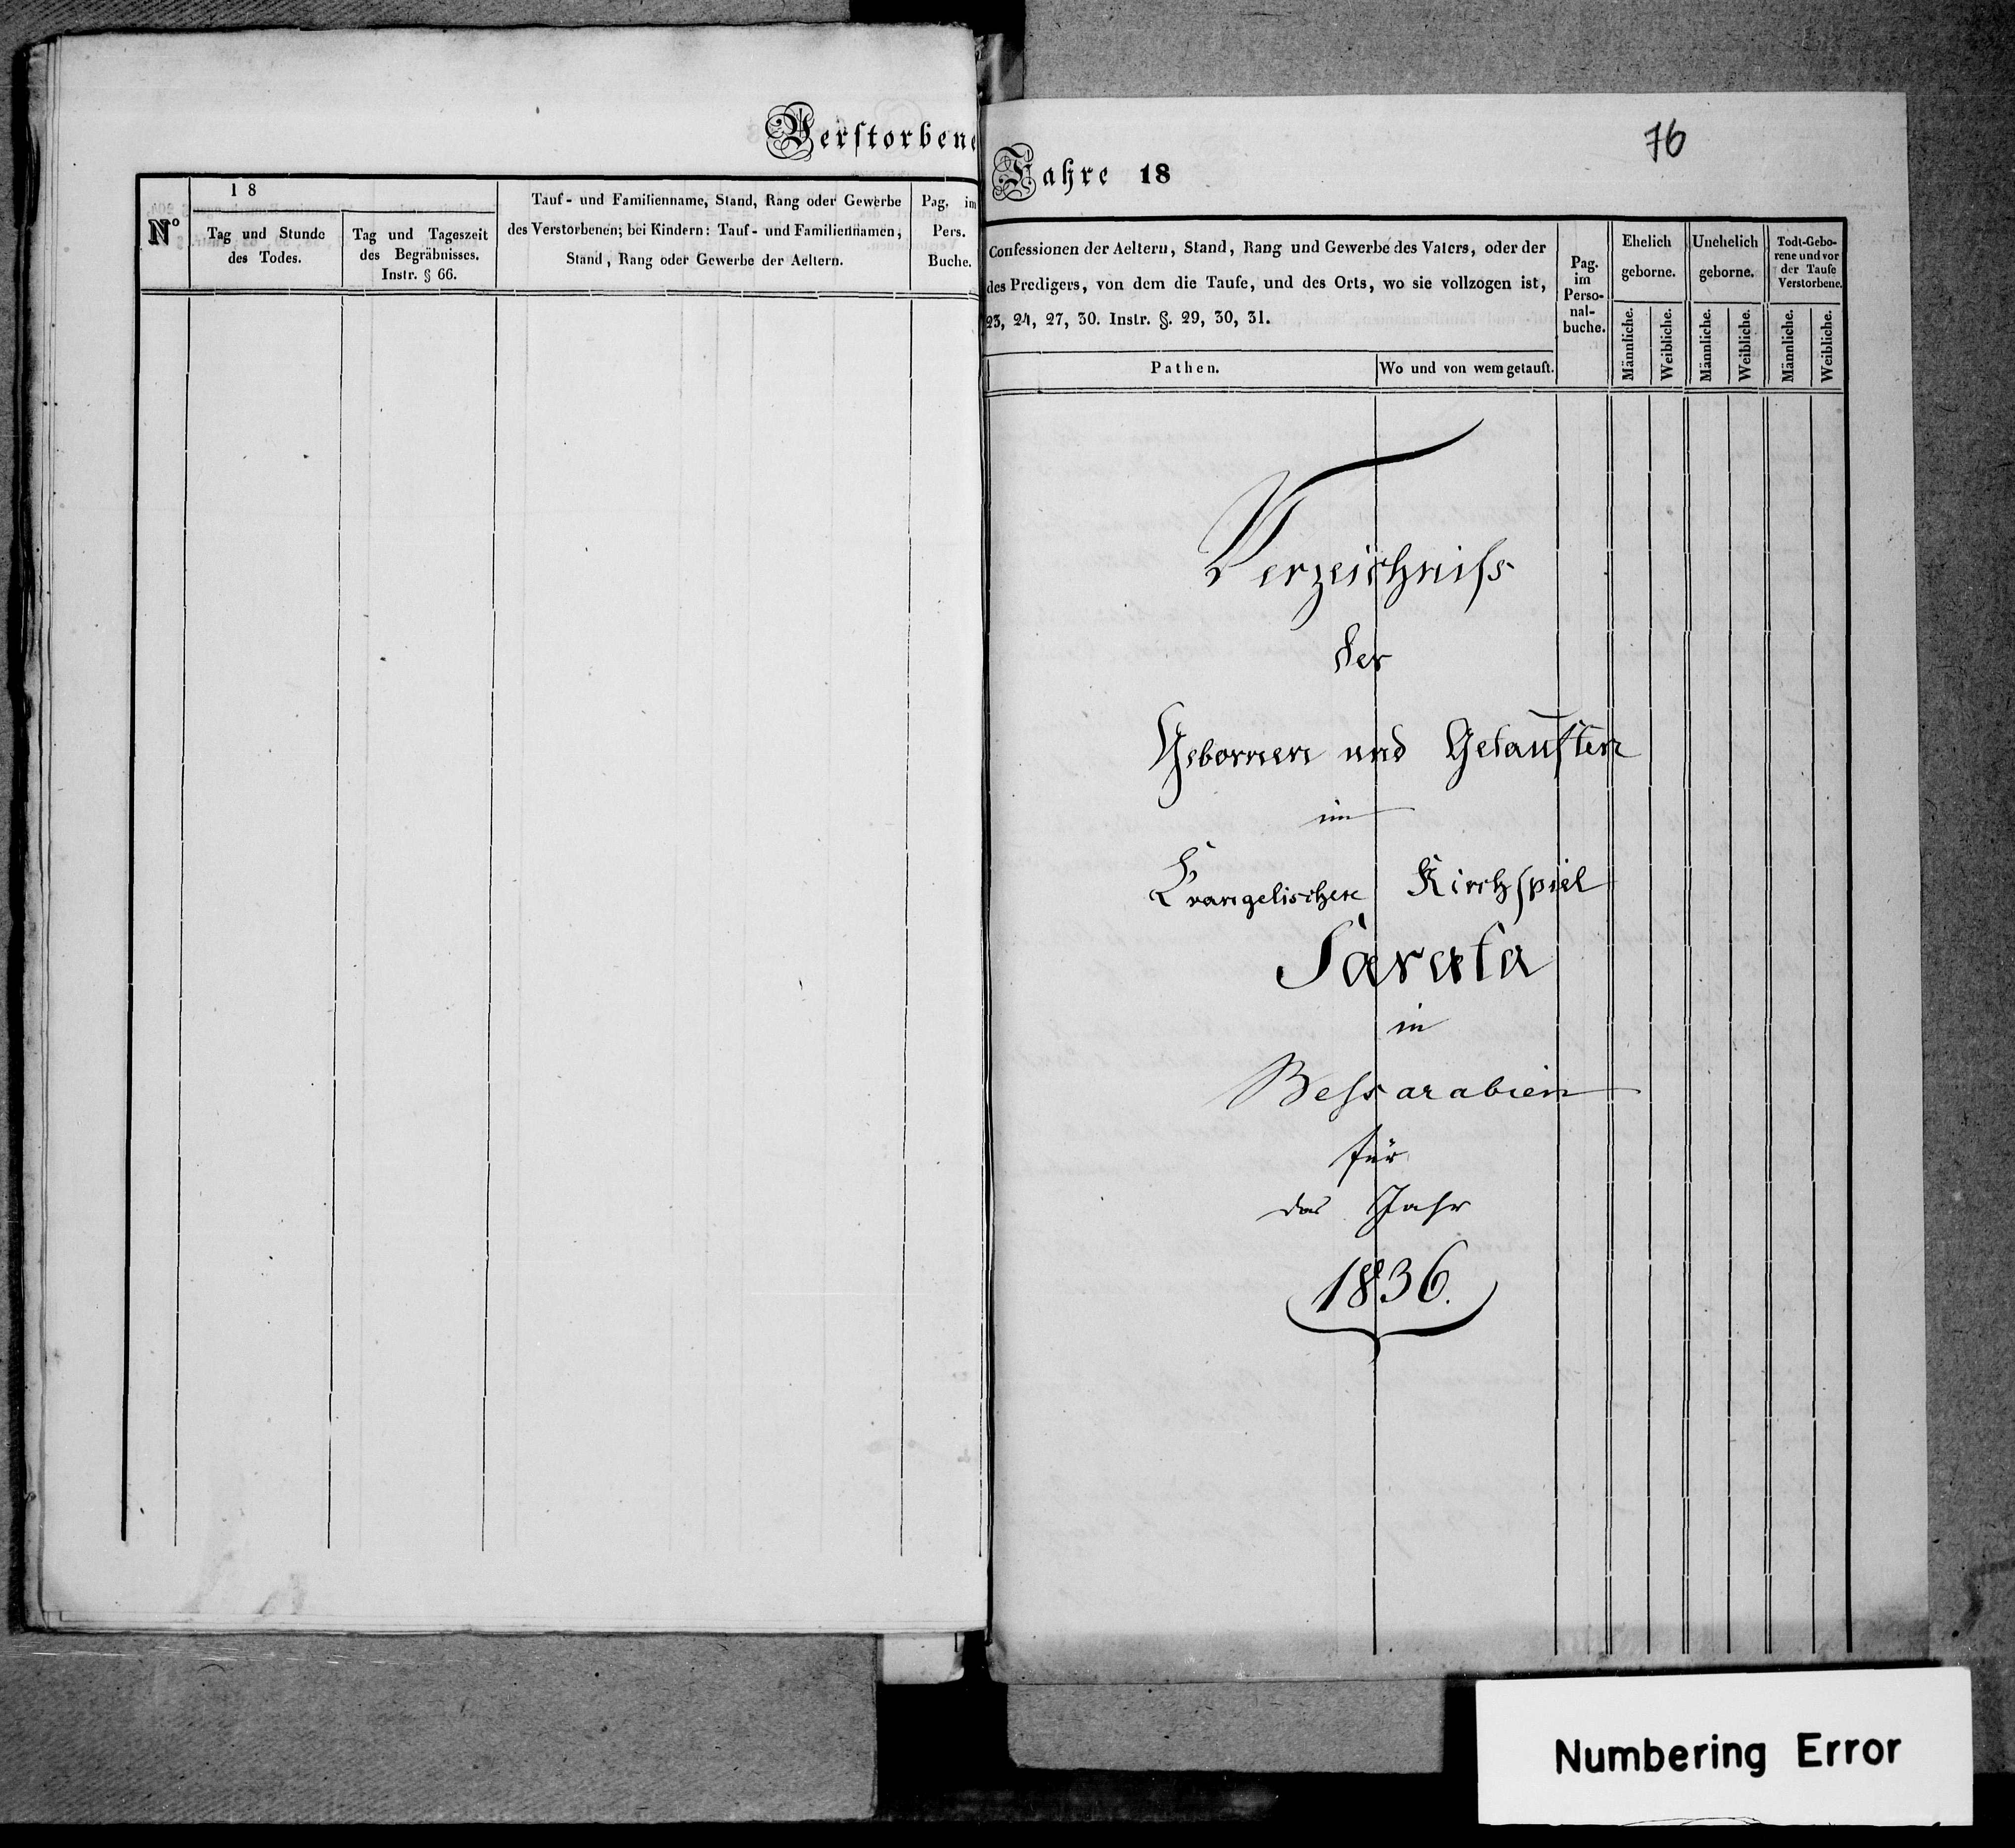 Verstorbene
N°
18
Tag und Stunde
des Todes.
Tag und Tageszeit
des Begräbnisses.
Instr. § 66.
Tauf- und Familienname, Stand, Rang oder Gewerbe
des Verstorbenen; bei Kindern: Tauf- und Familiennamen,
Stand, Rang oder Gewerbe der Aeltern.
Pag. im
Pers.
Buche.
76
Jahre 18
Confessionen der Aeltern, Stand, Rang und Gewerbe des Vaters, oder der
des Predigers, von dem die Taufe, und des Orts, wo sie vollzogen ist,
23, 24, 27, 30. Instr. §. 29, 30, 31.
Pathen.
Wo und von wem getauft.
Pag.
im
Perso-
nal-
buche.
Ehelich
geborne.
Männliche.
Weibliche.
Unehelich
geborne.
Männliche.
Weibliche.
Todt-Gebo-
rene und vor
der Taufe
Verstorbene.
Männliche.
Weibliche.
Verzeichniss
der
Gebornen und Getauften
im
Evangelischen Kirchspiel
Sarata
in
Bessarabien
für
das Jahr
1836.
Numbering Error